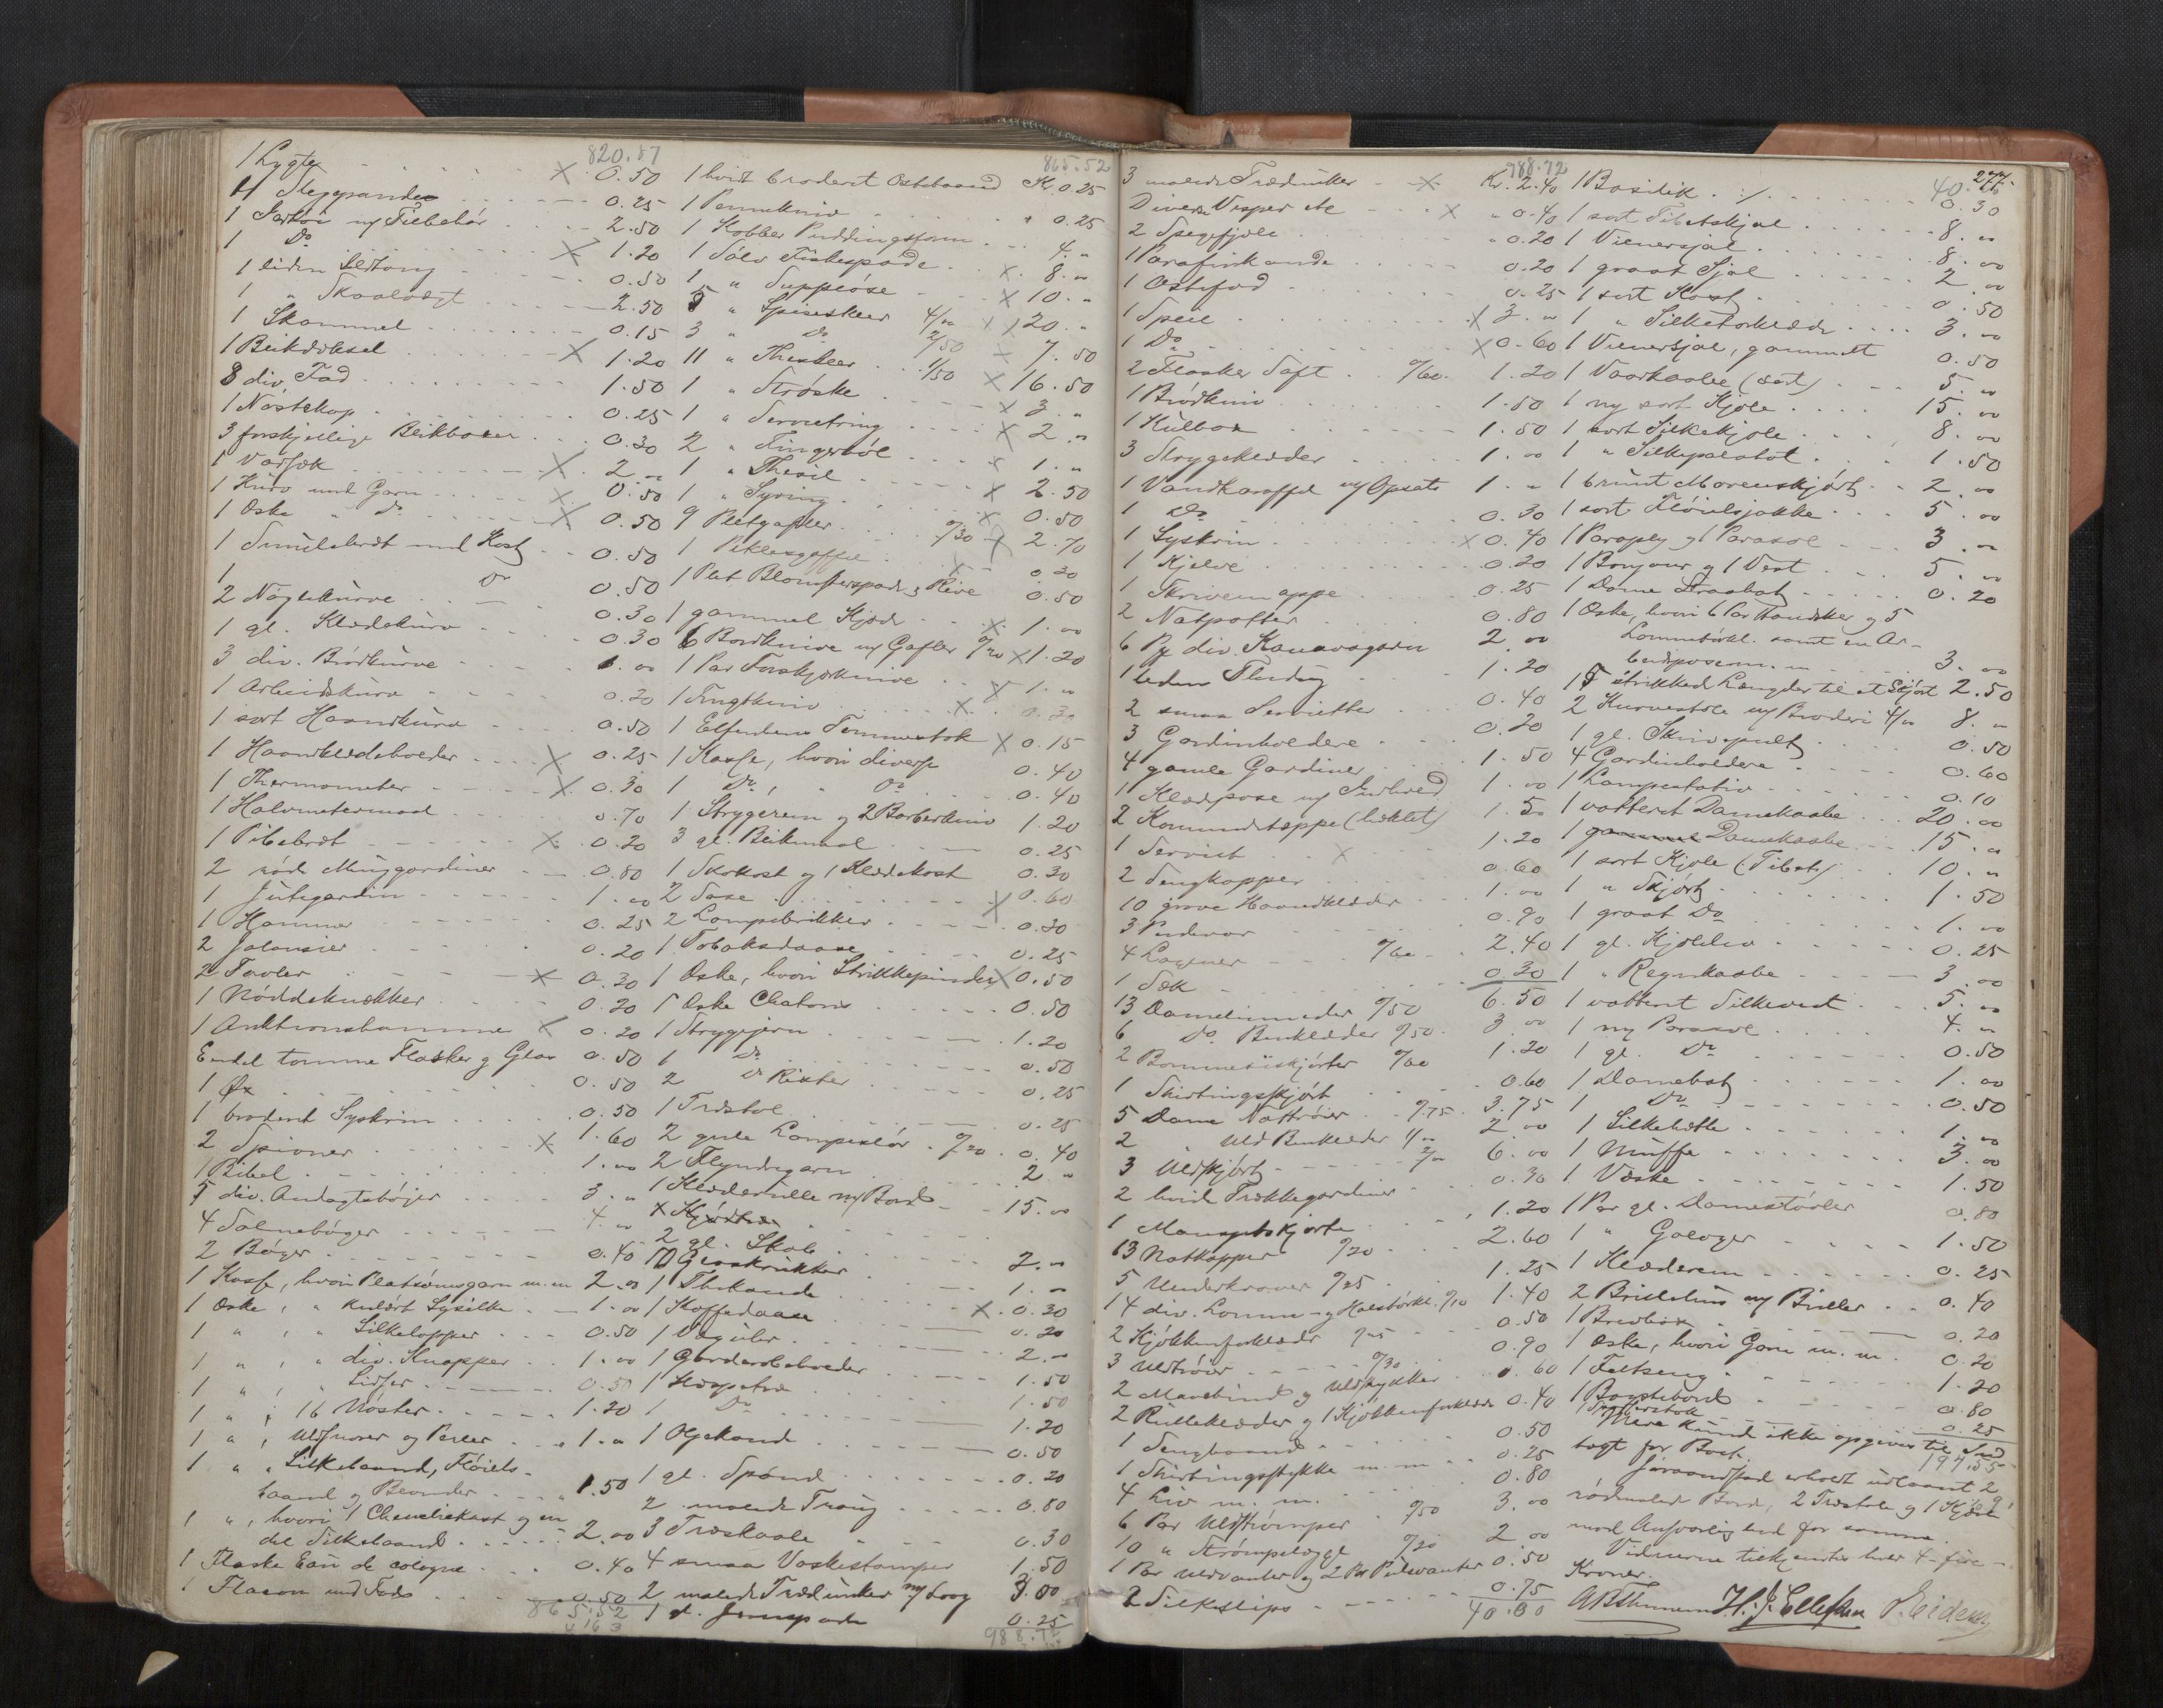 820.87
1 Lygte X 0.50
4 Stegepander 0.25
1 Fartöi m/ Tilbehör 2.50
1 Do X 1.20
1 liden Ildtang 0.50
1 " Skaalvægt 2.50
1 Skammel 0.15
1 Blikdeksel X 1.20
8 div. Fad 1.50
1 Nöstekop 0.25
3 forskjellige Blikboxer 0.30
1 Vadsæk X 2."
1 Kurv med Garn X 0.50
1 Æske " Do X 0.50
1 Smulebræt med Kost 0.50
1 Do 0.50
2 Nöglekurve 0.30
1 gl. Klædekurv 0.30
3 div. Brödkurve 1.00
1 Arbeidskurv 0.20
1 sort Haandkurv 0.50
1 Haandklædeholder X 0.25
1 Thermometer X 0.30
1 Halvmetermaal 0.70
1 Pibebræt X 0.20
2 röde Uldgardiner 0.80
1 Jutegardin 1.00
1 Hammer 0.25
2 Jalousier 0.20
2 Tavler X 0.30
1 Nöddeknækker 0.20
1 Auktionshammer X 0.20
Endel tomme Flasker og Glas 0.50
1 Øx 0.50
1 broderet Syskrin 0.50
2 Spioner X 1.60
1 Bibel 1.00
5 div. Andagtsböger 3."
4 Salmeböger 4."
2 Böger 0.40
1 Kasse, hvori Pletsömsgarn m.m 2.00
1 Æske, " kulört Sysilke 1.00
1 " , " Silkelapper 0.50
1 " , " div. Knapper 1.00
1 " , " Lidser 0.50
1 " , 16 Nöster 1.20
1 " , Uldsnorer og Perler 1."
1 " , Silkebaand, Flöiels-
baand og Blonder 1.50
1 " , hvori 1 Chenillekast og en
del Silkebaand 2.00
1 Flaske Eau de cologne 0.40
1 Flacon med Fod 0.50
865.52
865.52
1 hvidt broderet Ostebaand Kr. 0.25
1 Penneknive " 0.25
1 Kobber Puddingsform 4."
1 Sölv Fiskespade X 8."
1 " Suppeöse X 10."
5 " Spiseskeer 4/00 X 20."
3 " Do 2/50 X 7.50
11 " Theskeer 1/50 X 16.50
1 " Ströske X 3."
1 " Servietring X 2."
2 " Fingerböl X 1."
1 " Thesil X 2.50
1 " Syring X 0.50
9 Pletgafler 0/30 X 2.70
1 Piklesgaffel X 0.30
1 Plet Blomsterspade & Rive 0.50
1 gammel Kjæde X 1.00
6 Bordknive m/ Gafler 0/20 X 1.20
1 Par Forskjærknive X 1."
1 Frugtkniv X 0.30
1 Elfenbens Tommestok X 0.15
1 Kasse, hvori diverse 0.40
1 Do, " Do 0.40
1 Strygerem og 2 Barberknive 1.20
3 gl. Blikmaal 0.25
1 Skokost og 1 Klædekost 0.30
2 Saxe X 0.60
2 Lampebrikker 0.30
1 Tobaksdaase 0.25
1 Æske, hvori Strikkepinder X 0.50
1 Æske Chatons 0.50
1 Strygejern 1.20
1 Do 0.50
2 Do Rister 0.25
1 Træstol 0.25
2 gule Lampeslör 0/20 0.40
2 Flyndregarn 2."
1 Klæderulle m/ Bord 15.00
2 gl. Skab 2."
10 Glaskrukker 1."
1 Thekande X 0.30
1 Kaffedaase 0.20
1 Vaguler 2."
1 Garderobeholder 1.50
1 Klæpetræ 1.50
1 Do 1.20
1 Oljekande 0.50
1 gl. Spand 0.20
2 malede Traug 0.80
3 Træskaale 0.30
4 smaa Vaskestamper 1.50
2 malede Trædunker m/ Laag 3.00
1 gl. Jernspade 0.25
988.72
988.72
3 malede Trædunker X Kr. 2.40
Diverse Vesper etc X " 0.40
2 Spegefjæle " 0.20
1 Parafinkande 0.20
1 Ostefad 0.25
1 Speil X 3."
1 Do X 0.60
2 Flasker Saft 0/60 1.20
1 Brödkniv 1.50
1 Kulbox 1.50
3 Strygeklæder 1.00
1 Vandkaraffel m/ Opsats 1."
1 Do 0.30
1 Syskrin X 0.40
1 Kjedel 0.20
1 Skrivemappe 0.25
2 Natpotter 0.80
6 Pk div. Kanavagarn 2.00
1 leden 1.20
2 smaa Servietter 0.40
3 Gardinholdere 0.20
4 gamle Gardiner 1.50
1 Klædpose m/ Indhold 1.00
2 Kommodetæppe (hæklet) 1.50
1 Serviet X 1.20
2 Sengkapper 0.60
10 grove Haandklæder 1.00
3 Pudevar 0.90
4 Lagener 0/60 2.40
1 Sæk 0.30
13 Damelinneder 0/50 6.50
6 Do Benklæder 0/50 3.00
2 Bommesiskjörter 0/60 1.20
1 Shirtingsskjört 0.60
5 Dame Nattröier 0/75 3.75
2 Uld Benklæder 1/00 2.00
3 Uldskjört 2/00 6.00
2 hvide Trækkegardiner 0.30
1 Mansjetskjorte 1.20
13 Natkapper 0/20 2.60
5 Underkraver 0/25 1.25
14 div. Lomme- og Halstörkl. 0/10 1.40
2 Kjökkenforklæde 0/25 0.50
3 Uldtröier 0/30 0.90
2 Mavebind og Uldstykker 0.60
2 Rulleklæder og 1 Kjökkenforklæde 0.40
1 Sengbaand 0.50
1 Shirtingsstykke m. m. 0.25
4 Liv m. m. 0.80
6 Par Uldströmper 0/50 3.00
10 " Strömpelægge 0/20 2.00
1 Par Uldvanter og 2 Par Pulsvanter 0.50
2 Silkeslips 0.75
277.
1 Basilik :/: 0.30
1 sort Tibetskjal 8."
1 Vienersjal 8.00
1 graat Sjal 2.00
1 sort Kast 0.50
1 " Silketörklæde 3.00
1 Vienersjal, gammelt 0.50
1 Vaarkaabe (sort) 5."
1 ny sort Kjole 15.00
1 sort Silkekjole 8.00
1 " Silkepaletot 1.50
1 brunt Moreenskjört 2.00
1 sort Flöielsjakke 5.00
1 Paraply og 1 Parasol 3."
1 Bonjour og 1 Vest 5.00
1 Dame Straahat 0.20
1 Æske, hvori 6 Par Handsker og 5
Lommetörkl. samt en Ar-
beidspose m. m 3.00
15 strikkede Længder til et Skjört 2.50
2 Kurvestole m/ Broderi 4/00 8."
1 gl. Skrivepult 0.50
4 Gardinholdere 0.60
1 Lampestativ 0.10
1 vatteret Damekaabe 20.00
1 Damekaabe 15."
1 sort Kjole (Tibet) 10."
1 " Skjört 1.50
1 graat Do 1.00
1 gl. Kjoleliv 0.25
1 " Regnkaabe 3.00
1 vatteret Silkevest 5.00
1 ny Parasol 4."
1 gl. Do 0.50
1 Damehat 1.00
1 Do 0.50
1 Silkehætte 1.00
1 Muffe 3.00
1 Væske 1.50
1 Par gl. Damestövler 0.80
1 " Galoger 1.50
1 Klæderem 0.25
2 Bristelius m/ Briller 0.40
1 Brevbox 0.20
1 Æske, hvori Garn m. m. 0.20
1 Feltseng 1.20
1 Børstebord 0.80
0.25
Mere kunde ikke opgives til Ind-
tagt for Boet. 197.55
Jöraandstad erholdt udlaant 2
rödmalede Bord, 2 Træstole og 1 Kjedel
mod Ansvarlighed for samme.
Vidnerne tilkjendtes hver 4- fire-
Kroner.
H. J. Ellefsen